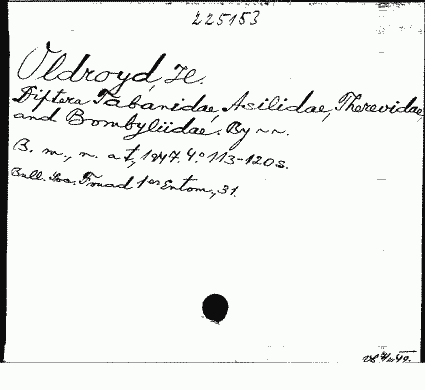 225153
Oldroyd, H.
Diptera Tabanidae, Asilidae, Therevidae,
and Bombyliidae. By ~ ~.
B. m., n. a t, 1947. 4° 113-120 s.
Bull. Soc. Fouad 1er Entom., 31.